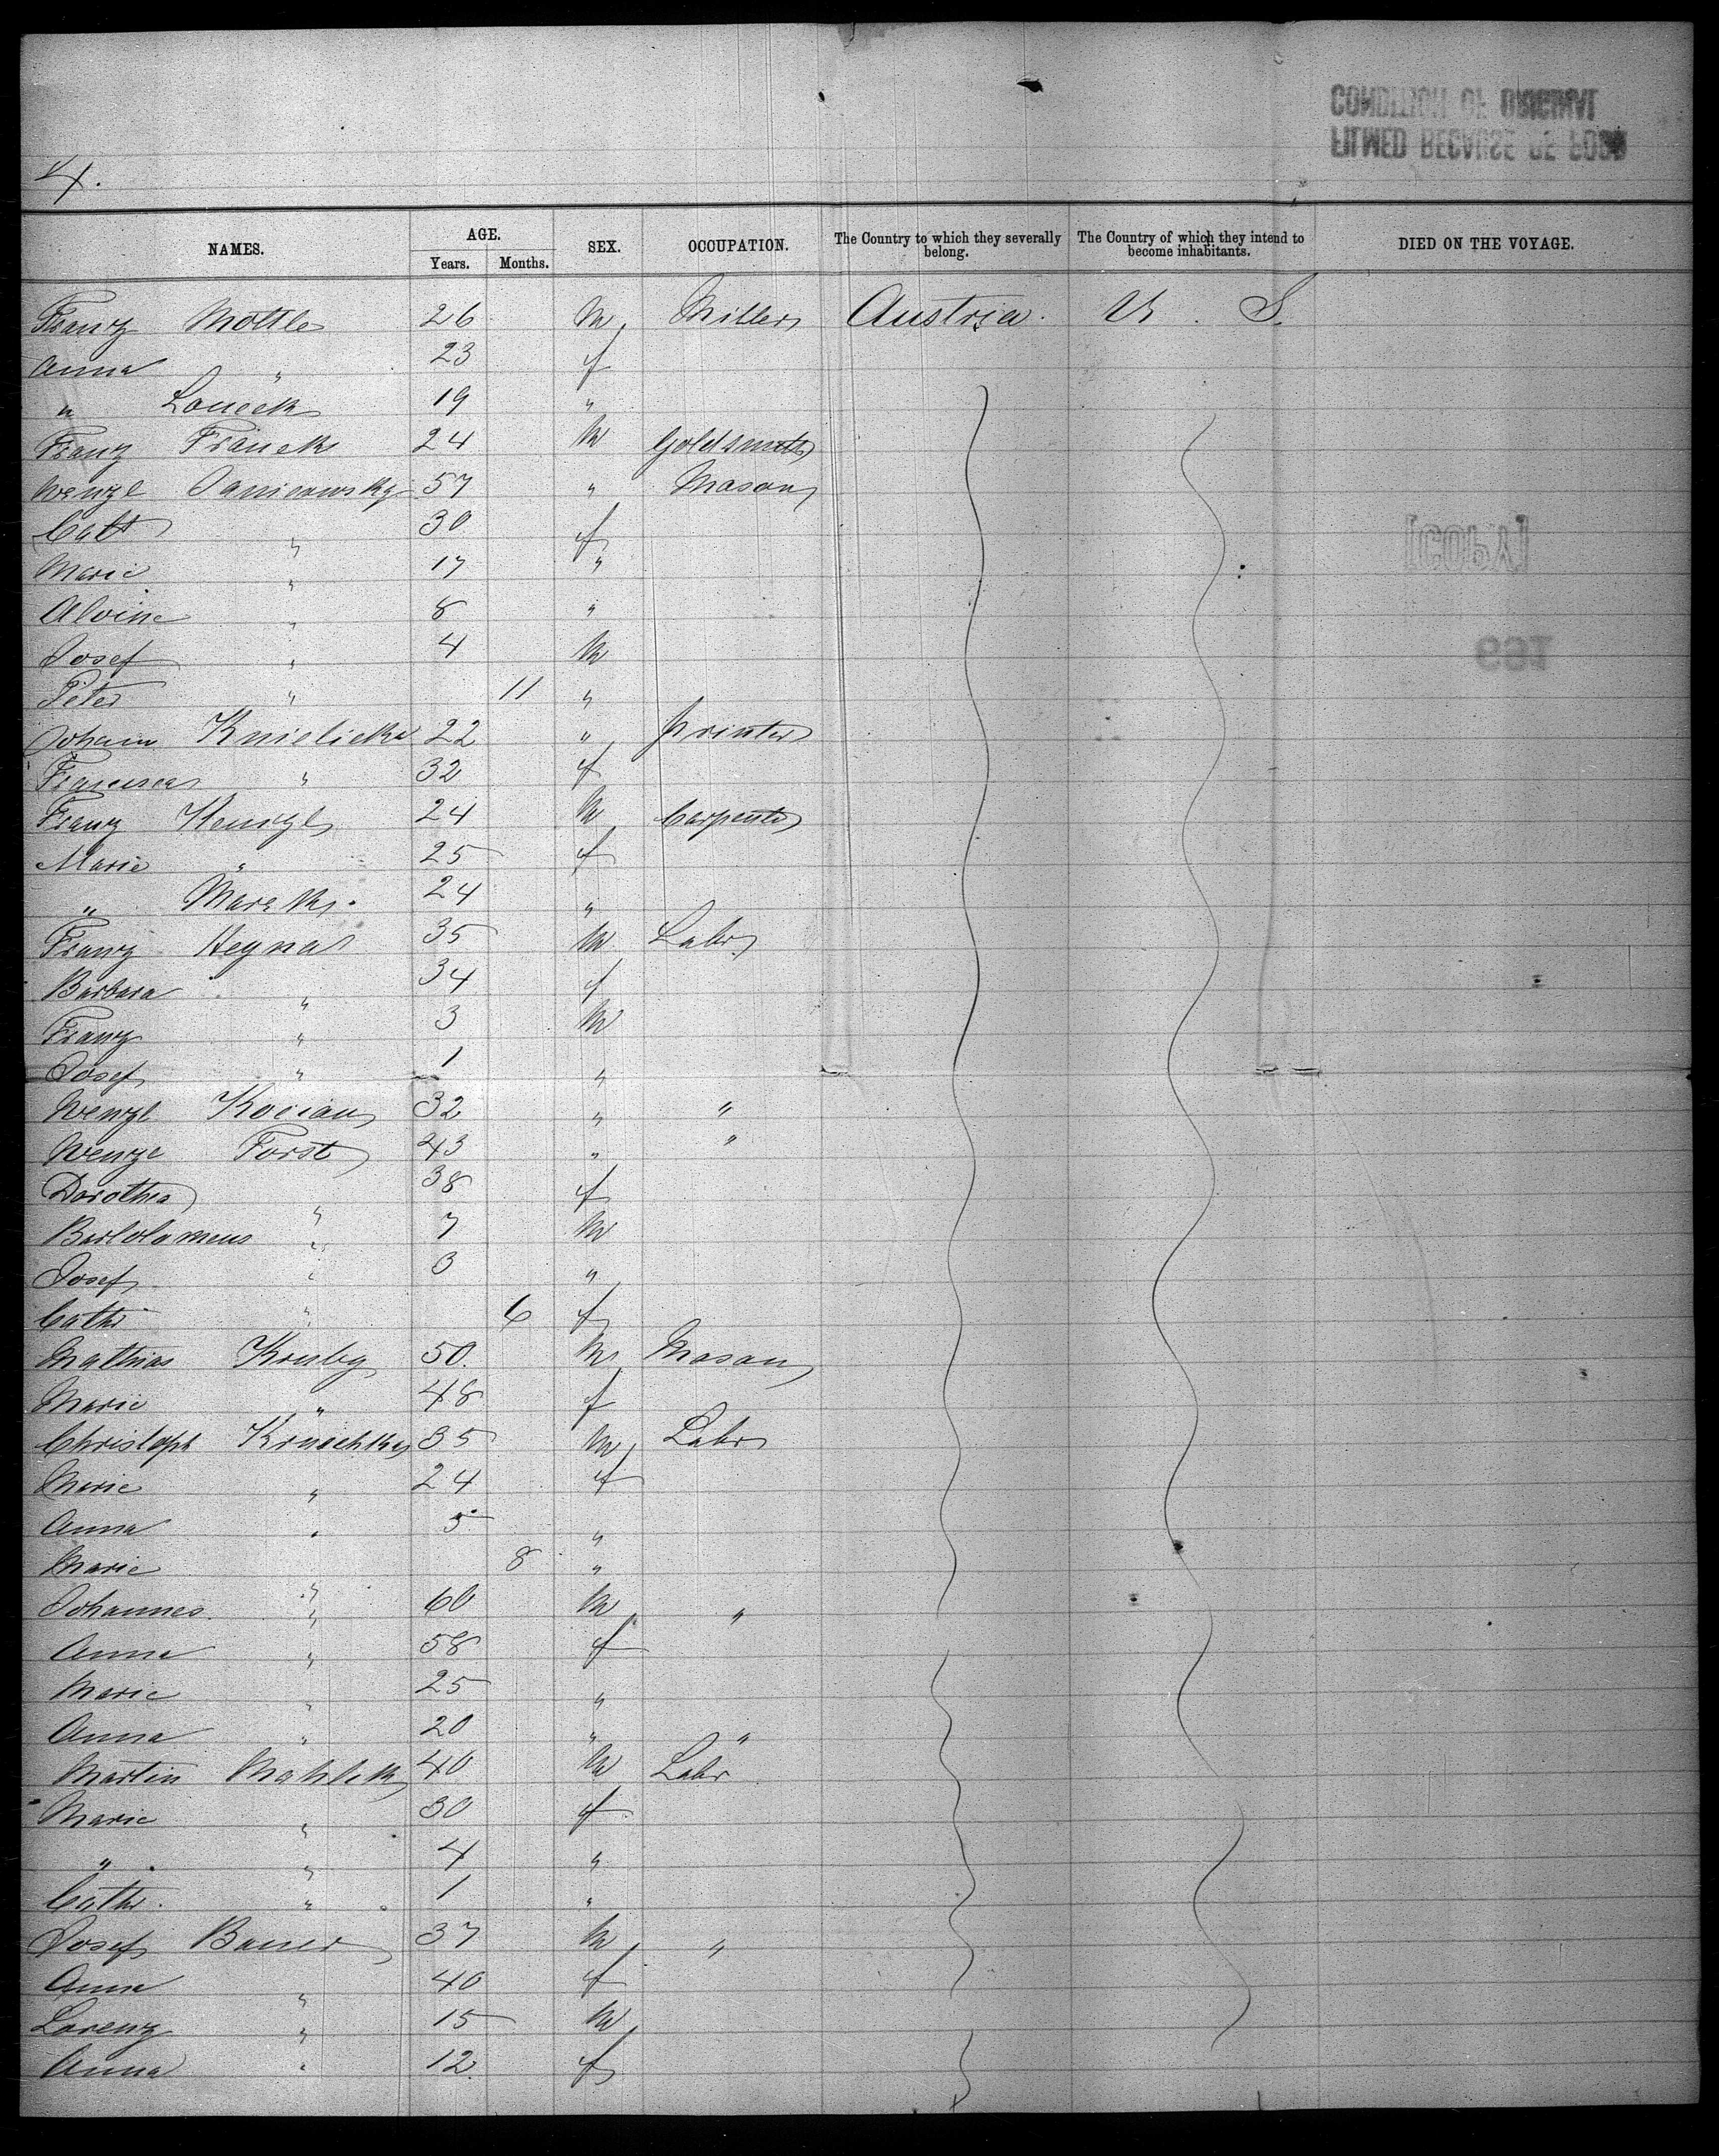 CONDITION OF ORIGINAL
FILMED BECAUSE OF POOR
4.
NAMES. AGE. SEX. OCCUPATION. The Country to which they severally belong. The Country of which they intend to become inhabitants. DIED ON THE VOYAGE.
Years. Months.
Franz Mottle 26 M Miller Austria. U. S.
Anna " 23 f
" 19 "
Franz Franek 24 M Goldsmith
Wenzl 57 " Mason
Cath " 30 f
Marie " 17 "
Alvine " 8 "
Josef " 4 M
Peter " 11 "
Johann Knielicka 22 " printer
Francisca " 32 f
Franz 24 M Carpenter
Marie " 25 f
" Marek. 24 "
Franz Heyna 35 M Labr
Barbara " 34 f
Franz " 3 M
Josef " 1 "
Wenzl Kocian 32 " "
Wenze Forst 43 " "
Dorothea " 38 f
Bartolomeus " 7 M
Josef " 3 "
Cath " 6 f
Mathias Kruby 50. M Mason
Marie " 48 f
Christoph 35 M Labr
Marie " 24 f
Anna " 5 "
Marie " 8 "
Johannes " 60 M "
Anna " 58 f
Marie " 25 "
Anna " 20 " "
Martin 40 M Labr
Marie " 30 f
" " 4 "
Cath. " 1 "
Josef Bauer 37 M "
Anna " 40 f
Lorenz " 15 M
Anna " 12. f
[COPY]
199